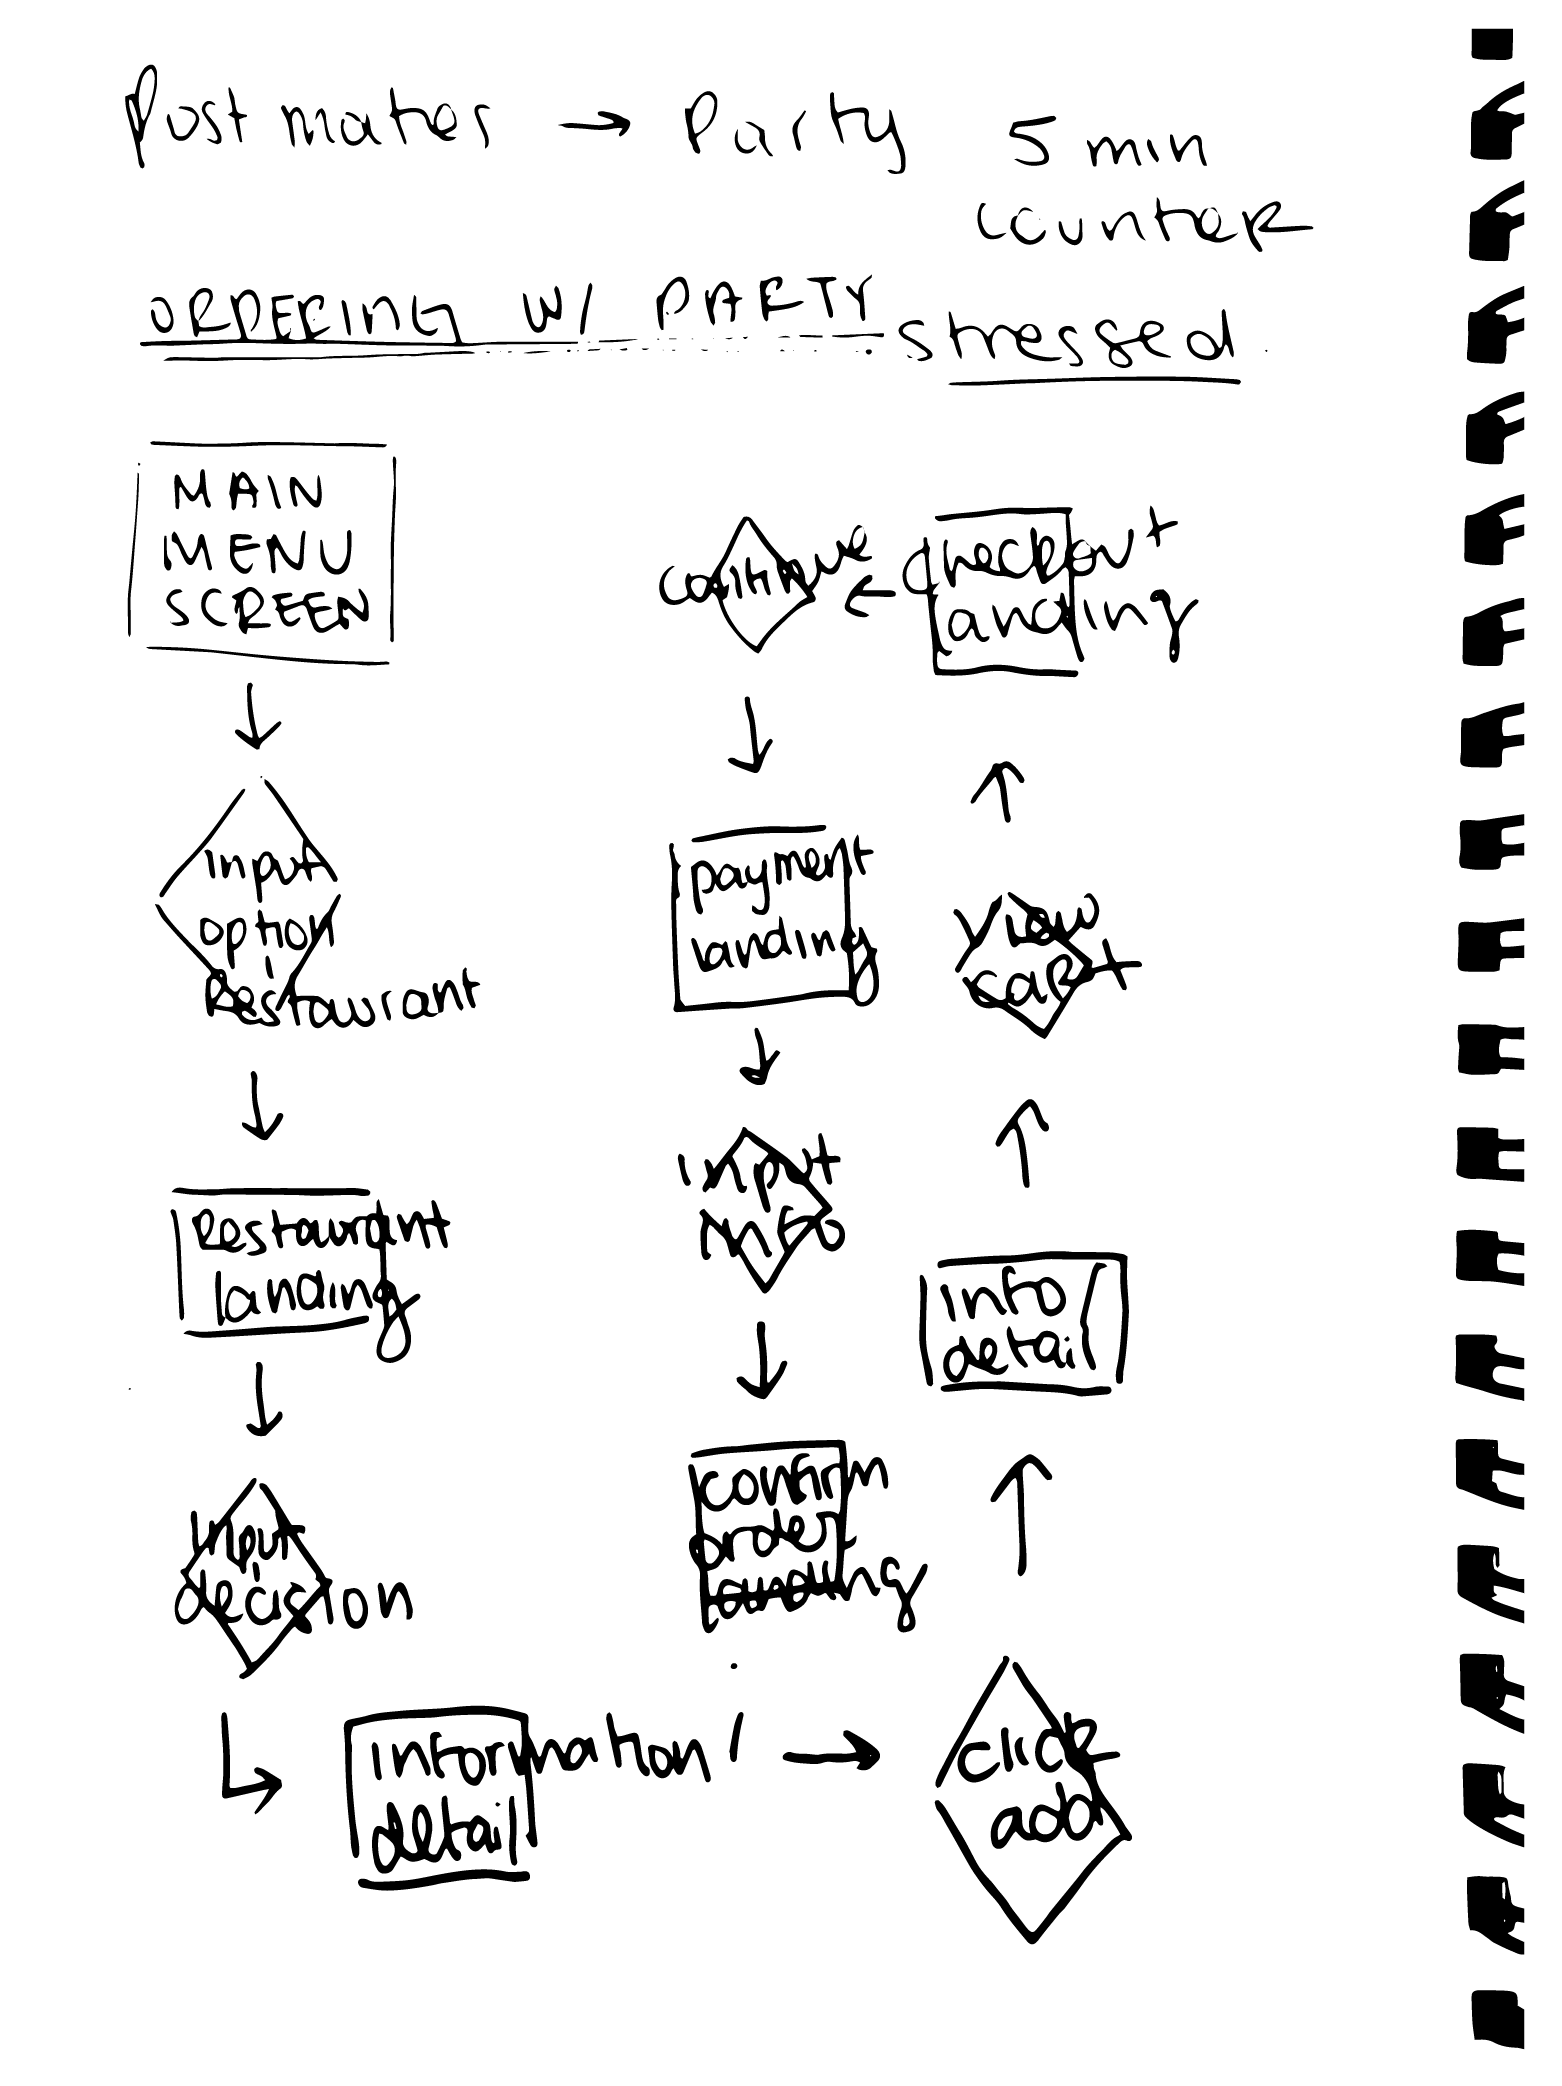 Postmates → Party
5 min
counter
ORDERING W/ PARTY
stressed
MAIN
MENU
SCREEN
input
option
Restaurant
Restaurant
landing
input
decision
information
detail
click
add
info
detail
view
cart
checkout
landing
continue
payment
landing
input
info
confirm
order
landing